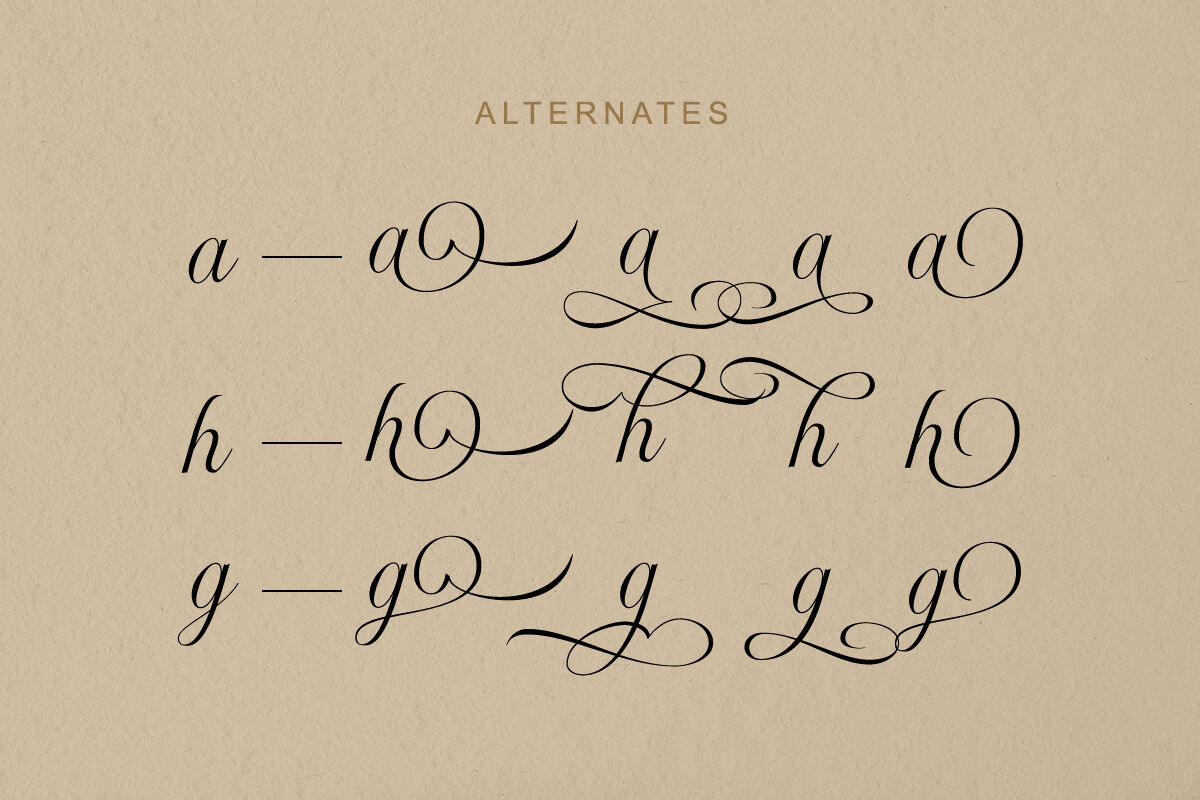 ALTERNATES
a — a a a a
h — h h h h
g — g g g g